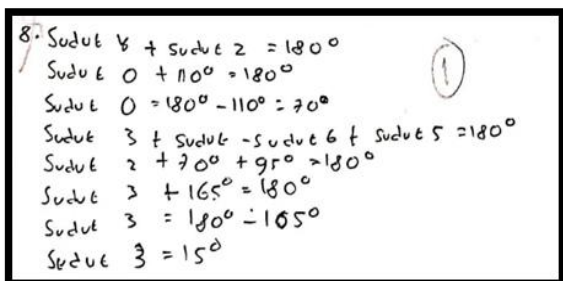 8. Sudut 8 + sudut 2 = 180°
Sudut 0 + 110° = 180°
Sudut 0 = 180° - 110° = 70°
Sudut 3 + sudut - sudut 6 + sudut 5 = 180°
Sudut 2 + 70° + 95° = 180°
Sudut 3 + 165° = 180°
Sudut 3 = 180° - 165°
Sudut 3 = 15°
1